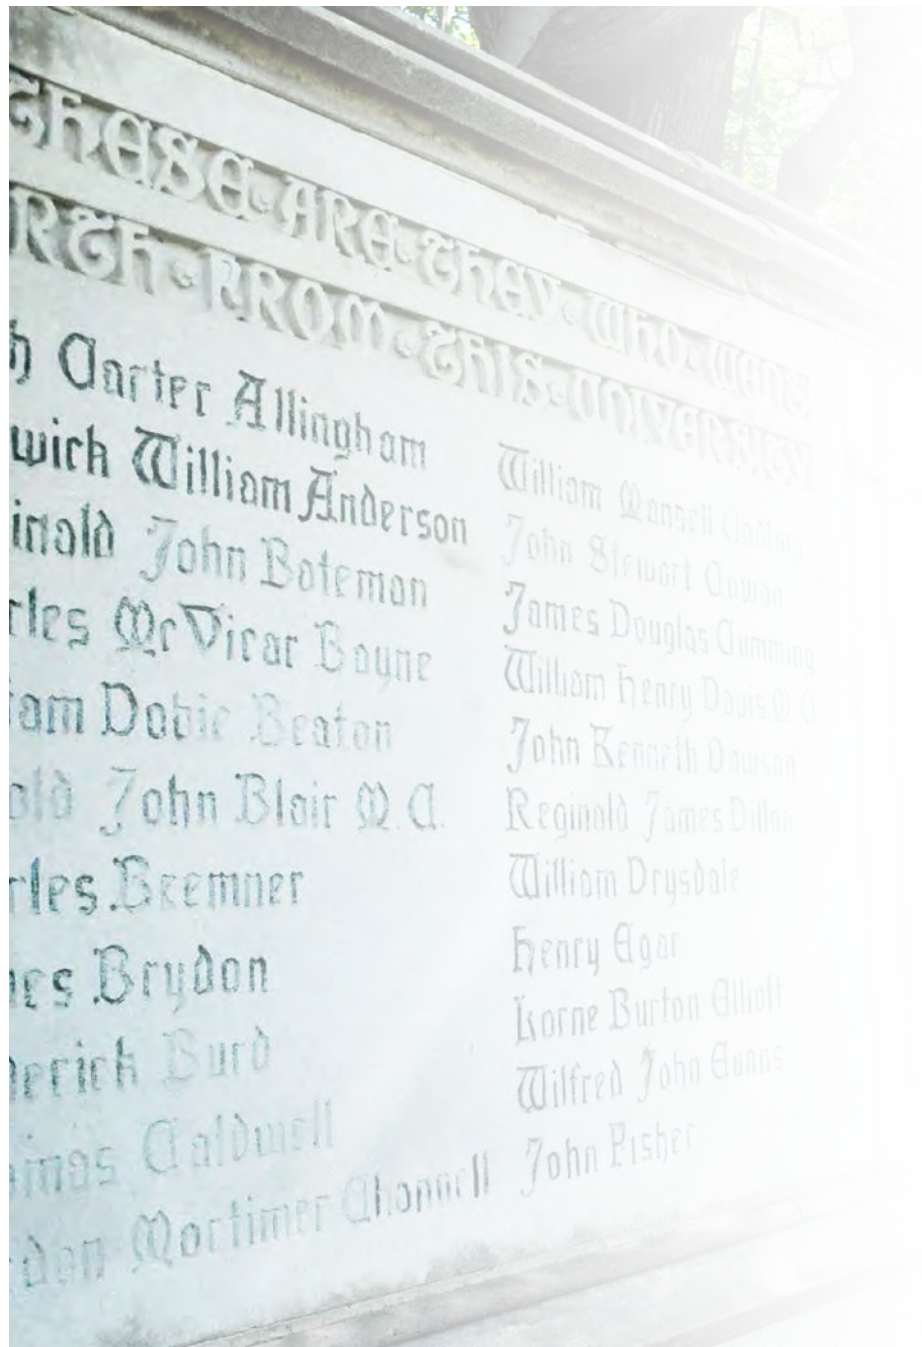 THESE · ARE · THEY · WHO · WENT
RTH · FROM · THIS · UNIVERSITY
h Carter Allingham
wick William Anderson
inald John Bateman
rles McVicar Bayne
iam Dobie Beaton
old John Blair M.C.
rles Bremner
es Brydon
derick Burd
omas Caldwell
don Mortimer Channell
William Mansell
John Stewart Cowan
James Douglas Cumming
William Henry Davis M.C.
John Kenneth Dawson
Reginald James Dillon
William Drysdale
Henry Egar
Lorne Burton Elliott
Wilfred John Evans
John Fisher